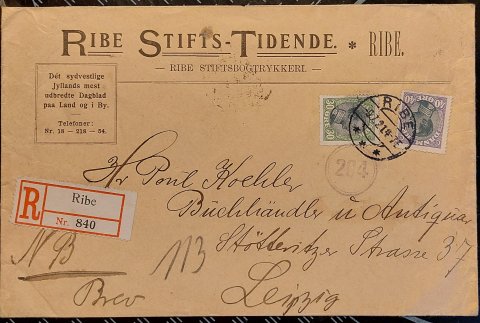 RIBE STIFTS-TIDENDE. * RIBE.
RIBE STIFTSBOGTRYKKERI.
Dét sydvestlige
Jyllands mest
udbredte Dagblad
paa Land og i By.
Telefoner:
Nr. 18 — 218 — 54.
30 ØRE
40 ØRE
RIBE
204
R
Ribe
Nr. 840
Hr Poul Koehler
Büchhändler u Antiquar
Stötteritzer Strasse 37
Leipzig
NB
113
Brev